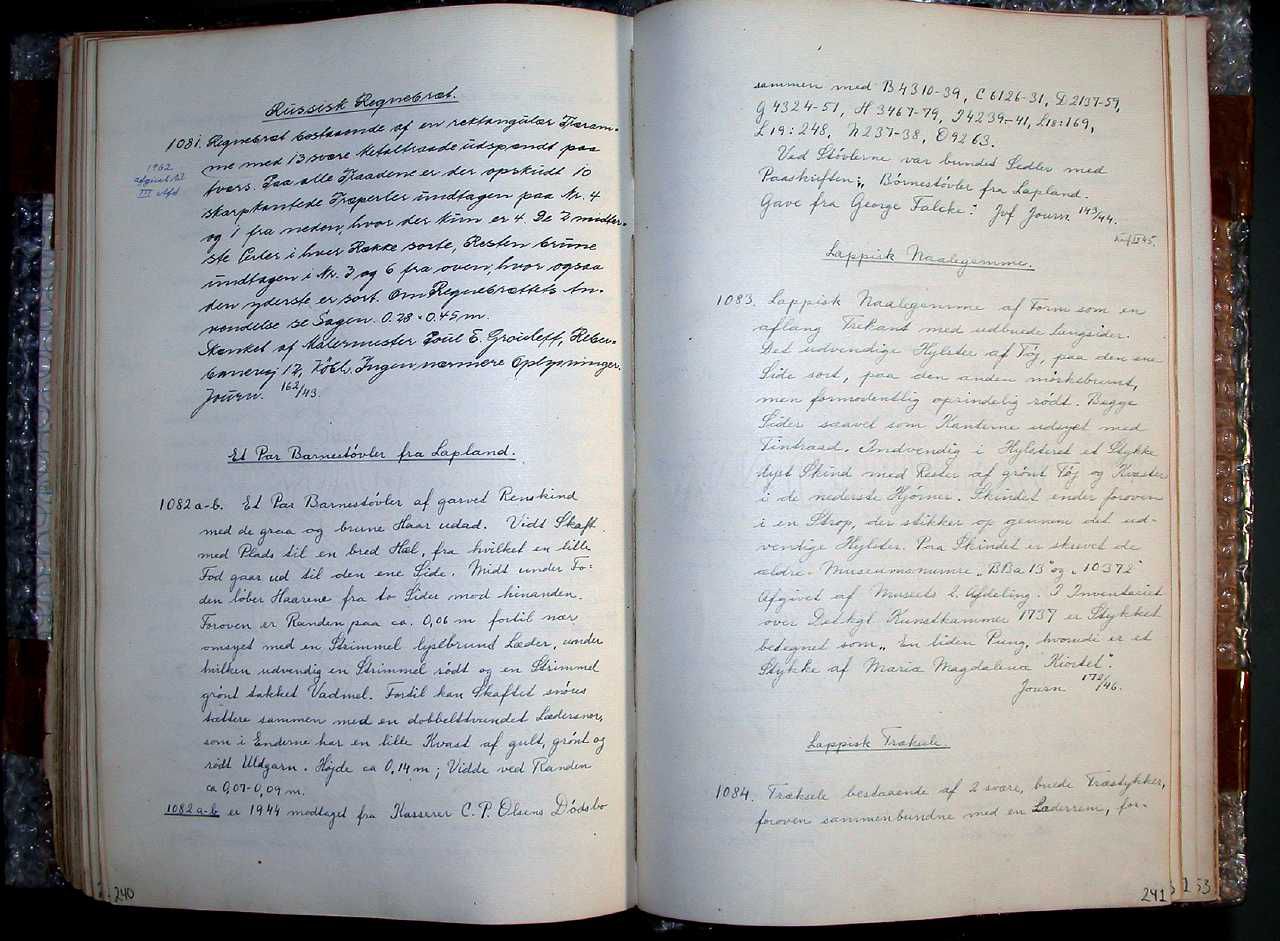 Russisk Regnebræt.
1081. Regnebræt bestaaende af en rektangulær Træram-
me med 13 svære Metaltraade udspændt paa
tvers. Paa alle Traadene er der opskudt 10
skarpkantede Træperler undtagen paa Nr. 4
og 1 fra neden, hvor der kun er 4. De 2 midter-
ste Perler i hver Række sorte, Resten brune
undtagen i Nr. 3 og 6 fra oven, hvor ogsaa
den yderste er sort. Om Regnebrættets An-
vendelse se Sagen. 0.28 × 0.45 m.
Skænket af Malermester Poul E. Grouleff,
banevej 12, Kbh. Ingen nærmere Oplysninger.
Journ. 162/43.
1962
afgivet til
III Afd
Et Par Barnestøvler fra Lapland.
1082 a-b. Et Par Barnestøvler af garvet Renskind
med de graa og brune Haar udad. Vidt Skaft
med Plads til en bred Hæl, fra hvilket en lille
Fod gaar ud til den ene Side. Midt under Fo-
den løber Haarene fra to Sider mod hinanden.
Foroven er Randen paa ca. 0,06 m fortil nær
omsyet med en Strimmel lysebrunt Læder, under
hvilken udvendig en Strimmel rødt og en Strimmel
grønt takket Vadmel. Fortil kan Skaftet snøres
tættere sammen med en dobbelttvundet Lædersnor,
som i Enderne har en lille Kvast af gult, grønt og
rødt Uldgarn. Højde ca 0,14 m; Vidde ved Randen
ca 0,07-0,09 m.
1082 a-b er 1944 modtaget fra Kasserer C. P. Olsens Dødsbo
240
sammen med B4310-39, C6126-31, D2137-59,
G4324-51, H3467-79, J4239-41, L18:169,
L19:248, N237-38, O9263.
Ved Støvlerne var bundet Sedler med
Paaskriften: „Børnestøvler fra Lapland.
Gave fra George Falcke." Jvf Journ 143/44.
Lappisk Naalegemme.
1083. Lappisk Naalegemme af Form som en
aflang Trekant med udbuede Langsider.
Det udvendige Hylster af Tøj, paa den ene
Side sort, paa den anden mørkebrunt,
men formodentlig oprindelig rødt. Begge
Sider saavel som Kanterne udsyet med
Tintraad. Indvendig i Hylsteret et Stykke
lyst Skind med Rester af grønt Tøj og Kvaster
i de nederste Hjørner. Skindet ender foroven
i en Strop, der stikker op gennem det ud-
vendige Hylster. Paa Skindet er skrevet de
ældre Museumsnumre „BBa 13" og „10372"
Afgivet af Museets 2. Afdeling. I Inventariet
over Det kgl. Kunstkammer 1737 er Stykket
betegnet som „En liden Pung, hvorudi er et
Stykke af Maria Magdalena Kiortel".
Journ 172/46.
Lappisk Træksele
1084. Træksele bestaaende af 2 svære, buede Træstykker,
foroven sammenbundne med en Læderrem, for-
241
253